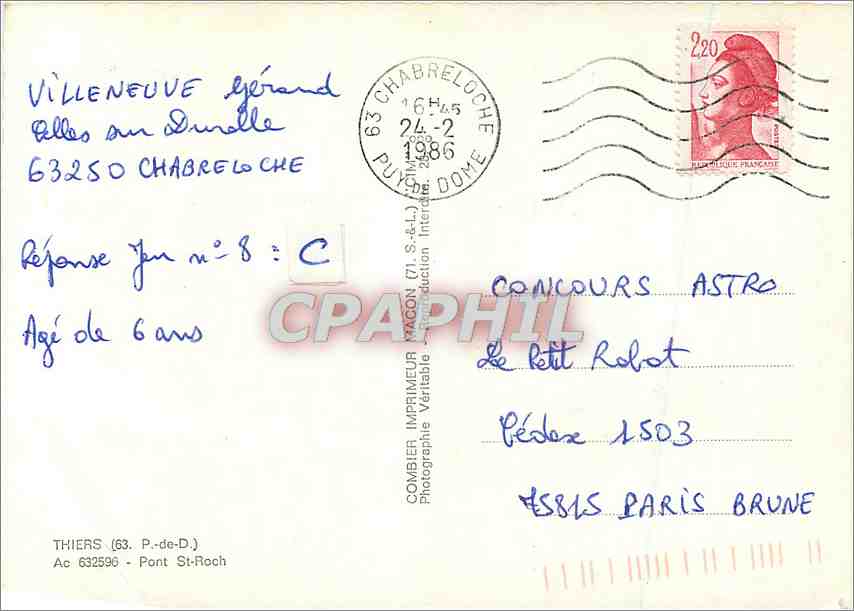 VILLENEUVE Gérand
Celles sur Durolle
63250 CHABRELOCHE
Réponse Jeu n° 8 : C
Agé de 6 ans
THIERS (63. P.-de-D.)
Ac 632596 - Pont St-Roch
63 CHABRELOCHE
16H45
24-2
1986
PUY-DE-DOME
COMBIER IMPRIMEUR MACON (71. S.-&-L.)
Photographie Véritable - Reproduction Interdite.
CPAPHIL
2,20
POSTES
REPUBLIQUE FRANÇAISE
CONCOURS ASTRO
Le Petit Robot
Cédex 1503
75815 PARIS BRUNE